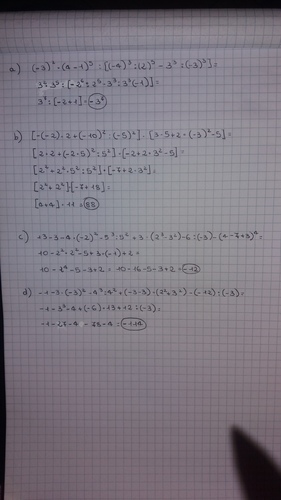 a) (-3)² · (4-1)⁵ : [(-4)³ : (2)⁵ - 3³ : (-3)³] =
3² · 3⁵ : [-2⁶ : 2⁵ - 3³ : 3³(-1)] =
3⁷ : [-2+1] = -3⁷
b) [-(-2) · 2 + (-10)² : (-5)²] · [3 · 5 + 2 · (-3)² - 5] =
[2 · 2 + (-2 · 5)² : 5²] · [-2 + 2 · 3² - 5] =
[2² + 2² · 5² : 5²] · [-7 + 2 · 3²] =
[2² + 2²] · [-7 + 18] =
[4+4] · 11 = 88
c) +3-3-4 · (-2)² - 5³ : 5² + 3 · (2³-3²) - 6 : (-3) - (4-7+3)⁴ =
10 - 2² · 2² - 5 + 3 · (-1) + 2 =
10 - 2⁴ - 5 - 3 + 2 = 10 - 16 - 5 - 3 + 2 = -12
d) -1 - 3 · (-3)² - 4³ : 4² + (-3-3) · (2²+3²) - (-12) : (-3) =
-1 - 3³ - 4 + (-6) · 13 + 12 : (-3) =
-1 - 27 - 4 - 78 - 4 = -114